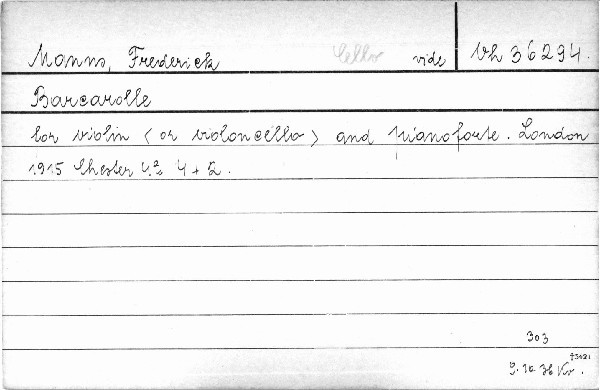 Manns, Frederick Cello vide Vh 36294.
Barcarolle
for violin (or violoncello) and pianoforte. London
1915 Chester 4.° 4 + 2.
303
†3421
9. 10. 36 Kr.